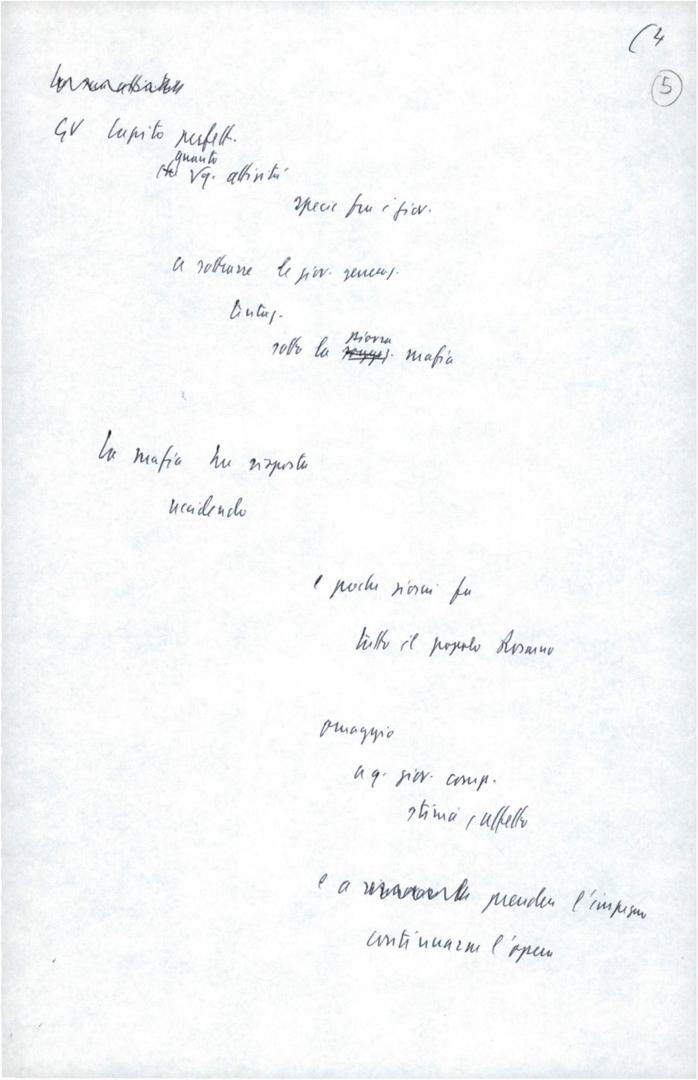 (4
5
GV capito perfett.
quanto
Vq. attività
specie fra i giov.
a sottrarre le giov. generaz.
sotto la mafia
la mafia ha risposto
uccidendo
e pochi giorni fa
tutto il popolo Rosarno
omaggio
a q. giov. comp.
stima, affetto
e a prender l'impegno
continuarne l'opera